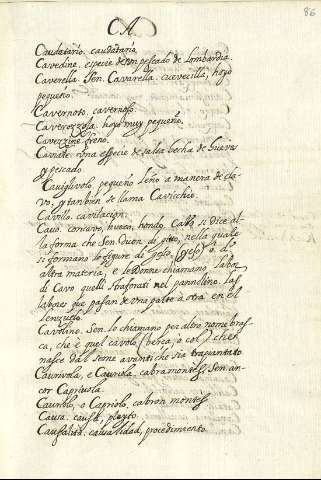 86
CA
Caudatario, caudataria
Cavedine, especie de un pescado de Lombardia
Caverella. Sen. Cavarella. cuevecilla, hoyo
pequeño.
Cavernoto, cavernoso.
Caverozzola, hoyo muy pequeño.
Cavezzine. freno.
Caviale. una especie de salsa hecha de huevos
y pescado
Caviglivolo, pequeño leño a manera de cla-
vo, y tambien se llama Cavicchio.
Cavillo. cavilacion.
Cavo. concavo, hueco, hondo. si dice al
la forma che Sen. di nella quale
si formano le figure di geso, (yeso) ò do
altra materia, e le donne chiamano
di Cavo quelli straforati nel pannolino.
que pasan de una parte à otra en el
lenzuelo
Cavolino. Sen. lo chiamano per altro nome bros-
ca, che è quel cavolo (berça, o col) che ri-
nasce dal seme avanti che sia trapiantato
Caurivola, e Cauriola. cabra montés. Sen. an-
cor Capriuola.
Cauriolo, o Capriolo, cabron montés
Causa. causa, pleyto.
Causalità. causalidad, procedimiento